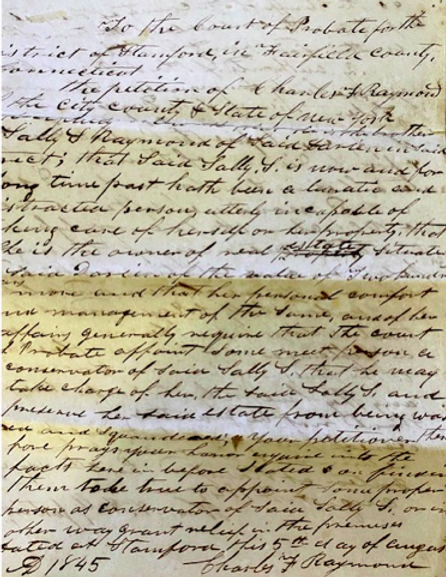 To the Court of Probate for the
istrict of Stamford, in Fairfield County,
onnecticut
The petition of Charles F Raymond
f the City county & State of New York
brother
Sally S Raymond of Said Darien in said
rict; that Said Sally S. is now and for
ong time past hath been a lunatic and
istracted person, utterly incapable of
king care of herself or her property, that
he is the owner of real estate Situate
Said Darien of the value of Two hundr
more and that her personal comfort
nd management of the Same, and of her
affairs generally require that the court
Probate appoint Some meet person a
conservator of Said Sally S. that he may
take charge of her, the Said Sally S. and
preserve her said estate from being was
ed and Squandered, Your petitioner the
fore prays your honor enquire into the
facts here in before Stated & on findin
them to be true to appoint Some proper
person as conservator of Said Sally S. or in
other way grant relief in the premises
ated at Stamford this 5th day of Augus
AD 1845 Charles F Raymond